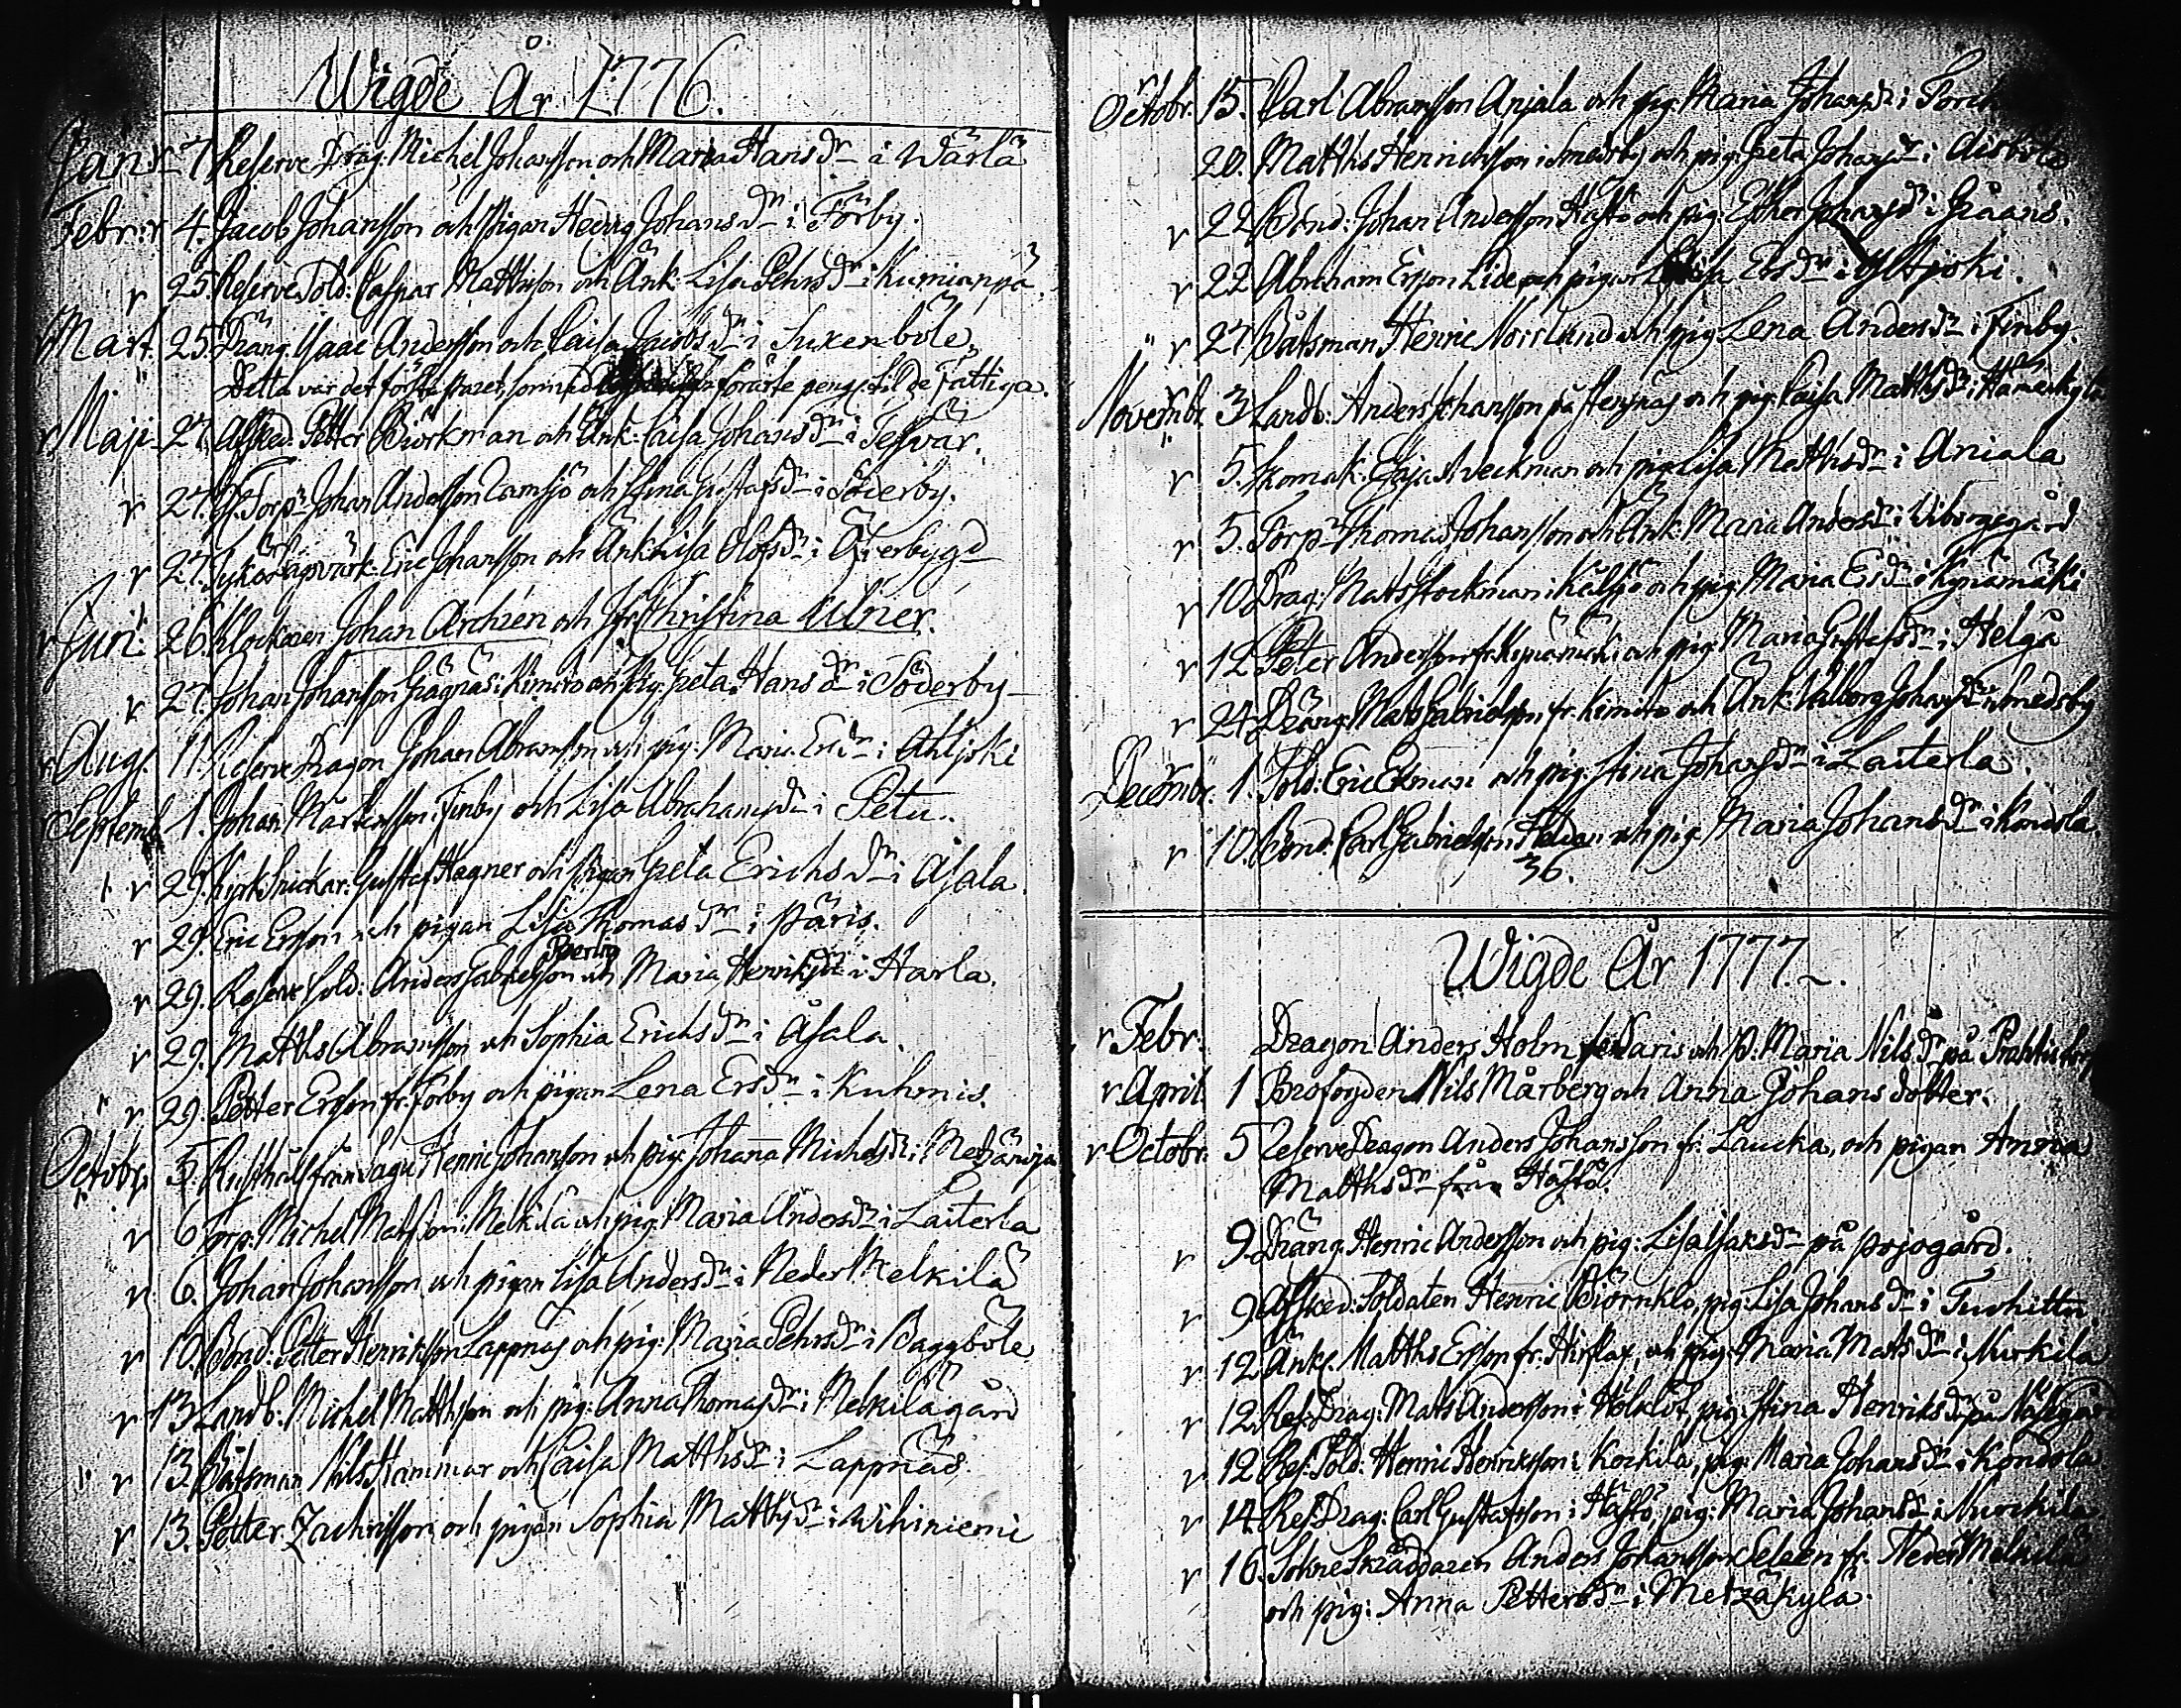 Wigde År 1776.
Janr 7. Reserve Drag: Michel Johansson och Maria Hansdr i Wärlä
Febr: r 4. Jacob Johansson och Pigan Hedvig Johansdr i Förby.
r 25. Reserve Sold: Caspar Mattsson och Änk: Lisa Pehrsdr i Kumianpä.
Mart. 25. Dräng. Isaac Andersson och Caisa Jacobsdr i Suxenböle.
Detta var det första paret, som förärte peng: til de Fattiga.
r Maji 27. Afsked: Petter Björkman och Änk: Caisa Johansdr i Tesvar.
r 27. Torpr Johan Andersson Lamsjö och Stina Gustafsdr i Söderby.
r 27. Eric Johansson och Änk Lisa Olofsdr i Öfverbygd
r Juni. 26. Klockaren Johan Archén och Jfr Christina Ulner.
r 27. Johan Johansson Grägnäs i Kimito och Pig: Greta Hansdr i Söderby
r Aug. 11. Reserve Dragon Johan Abramsson och pig: Maria Ersdr i Ahljoki
r Septemb 1. Johan Mårtensson i Finby och Lisa Abrahamsdr i Petu.
r 29. Gustaf Hagner och Pigan Greta Erichsdr i Åsala.
r 29. Eric Ersson och pigan Lisa Thomasdr i Päris.
r 29. Reserve Sold: Anders Gabrielsson Perlig och Maria Henriksdr i Harla.
r 29. Matths Abramsson och Sophia Erichsdr i Åsala.
r 29. Petter Ersson fr. Förby och pigan Lena Ersdr i Kuhmis.
Octobr 5. Rusthåll från Sagu Henric Johansson och pig: Johanna Michelsdr i Metzänoja
r 6. Torp: Michel Matsson i Melkilä och pig: Maria Andersdr i Laiterla
r 6. Johan Johansson och pigan Lisa Andersdr i Neder Melkilä
r 10. Bond: Petter Henriksson Lappnäs och pig: Maria Pehrsdr i Baggböle
r 13 Landb: Michel Matthsson och pig: Anna Thomasdr i Melkilägård
r 13. Båtsman Nils Hammar och Caisa Matthsdr i Lappnäs.
r 13. Petter Zachrisson och pigan Sophia Matthsdr i Wihiniemi
Octobr. 15. Carl Abramsson Anjala och pig: Maria Johansdr i
20. Matths Henrichsson i Smedsby och pig: Greta Johansdr i Aisböle
r 22 Bond: Johan Andersson Hästö och pig: Esther Johansdr i Gråans.
r 22 Abraham Ersson Lide och pigan Lisa Ersdr i Ylljoki.
r 27 Båtsman Henric Norrlund och pig Lena Andersdr i Finby.
Novembr. 3 Landb: Anders Johansson på Stensnäs och pig: Caisa Matthsdr i Hämenkylä
r 5. Skomak: Elias Aveckman och pig Lisa Matthsdr i Aniala
r 5. Torpr Thomas Johansson och Änk: Maria Andersdr i Wiborgsgård
r 10 Drag: Mats Stockman i Kälsjö och pig: Maria Ersdr i Kyiämäki
r 12 Peter Andersson fr. och pig: Maria Gustafsdr i Helgå
r 24. Dräng: Mats Gabrielsson fr. Kimito och Änk: Walborg Johansdr i Smedsby
Decembr. 1. Sold: Eric Ekman och pig: Stina Johansdr i Laiterla.
r 10. Bond: Carl Gabrielsson och pig: Maria Johansdr i Kondola.
36.
Wigde År 1777.
r Febr. Dragon Anders Holm fr. Päris och P. Maria Nilsdr på
r April. 1 Brofogden Nils Mårberg och Anna Johans dotter.
r Octobr. 5 Reserve Dragon Anders Johansson fr. Laucka, och pigan Anna
Matthsdr från Hästö.
r 9. Dräng: Henric Andersson och pig: Lisa Isaksdr på Pojogård.
r 9. Afsked: Soldaten Henric Björnklo, pig: Lisa Johansdr i Tuohittu
r 12. Änkl. Matths Ersson fr. Hirslax, och pig: Maria Matsdr i Nurkila
r 12. Res. Drag: Mats Andersson i Hölklöt, pig: Stina Henriksdr på Näsegård
r 12 Res: Sold: Henric Henriksson i Kockila, pig: Maria Johansdr i Kondola
r 14. Res: Drag: Carl Gustafsson i Hästö, pig: Maria Johansdr i Nurckila
r 16. Sokneskräddaren Anders Johansson Seleen fr. Neder Melkilä
och pig: Anna Pettersdr i Metzäkylä.